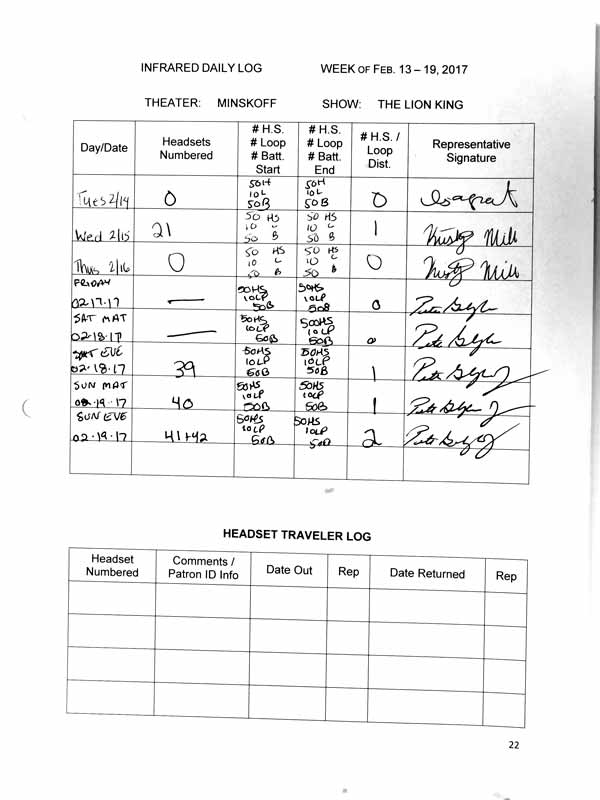 INFRARED DAILY LOG WEEK OF FEB. 13 – 19, 2017
THEATER: MINSKOFF SHOW: THE LION KING
Day/Date Headsets Numbered # H.S. # Loop # Batt. Start # H.S. # Loop # Batt. End # H.S. / Loop Dist. Representative Signature
Tues 2/14 0 50H 10L 50B 50H 10L 50B 0
Wed 2/15 21 50 HS 10 L 50 B 50 HS 10 L 50 B 1
Thus 2/16 0 50 HS 10 L 50 B 50 HS 10 L 50 B 0
FRIDAY 02.17.17 — 50HS 10LP 50B 50HS 10LP 50B 0
SAT MAT 02.18.17 — 50HS 10LP 50B 500HS 10LP 50B 0
SAT EVE 02.18.17 39 50HS 10LP 50B 50HS 10LP 50B 1
SUN MAT 02.19.17 40 50HS 10LP 50B 50HS 10LP 50B 1
SUN EVE 02.19.17 41+42 50HS 10LP 50B 50HS 10LP 50B 2
HEADSET TRAVELER LOG
Headset Numbered Comments / Patron ID Info Date Out Rep Date Returned Rep
22